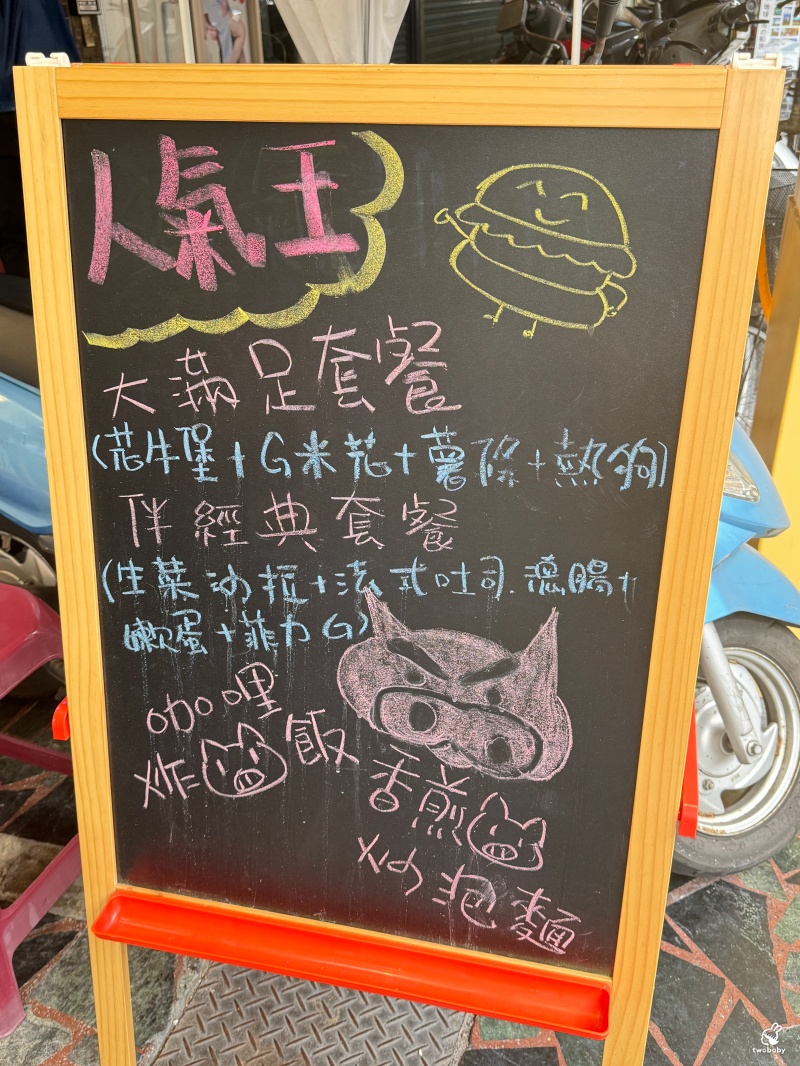 人氣王
大滿足套餐
(花牛堡+G米花+薯條+熱狗)
伴經典套餐
(生菜沙拉+法式吐司.德腸+
嫩蛋+菲力G)
咖哩
炸 飯
香煎
炒泡麵
twobaby